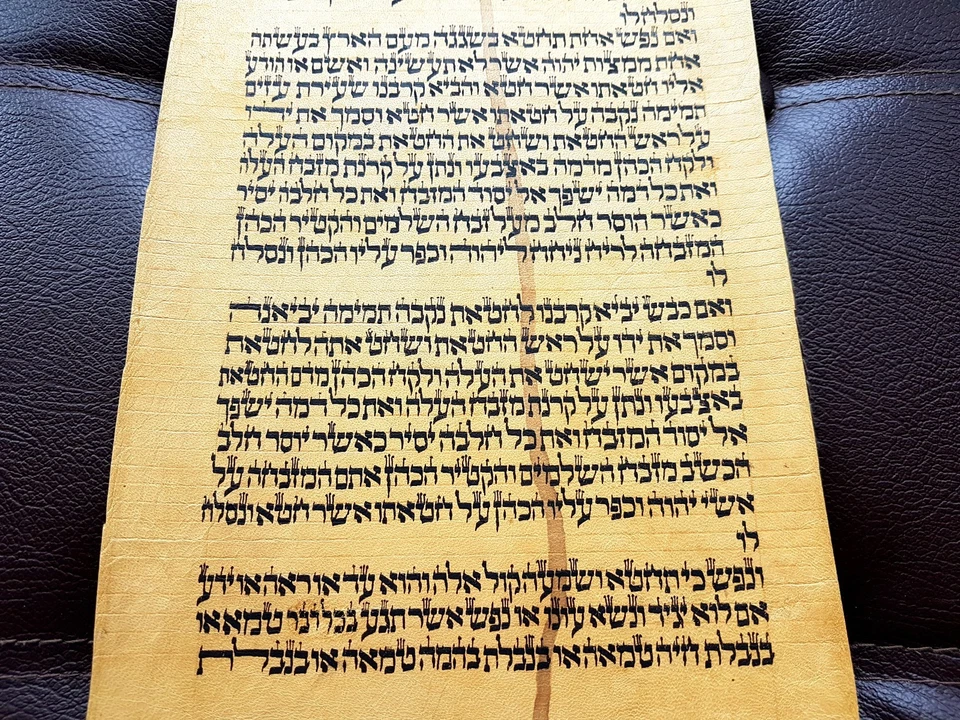 ונסלח לו
ואם נפש אחת תחטא בשגגה מעם הארץ בעשתה
אחת ממצות יהוה אשר לא תעשינה ואשם או הודע
אליו חטאתו אשר חטא והביא קרבנו שעירת עזים
תמימה נקבה על חטאתו אשר חטא וסמך את ידו
על ראש החטאת ושחט את החטאת במקום העלה
ולקח הכהן מדמה באצבעו ונתן על קרנת מזבח העלה
ואת כל דמה ישפך אל יסוד המזבח ואת כל חלבה יסיר
כאשר הוסר חלב מעל זבח השלמים והקטיר הכהן
המזבחה לריח ניחח ליהוה וכפר עליו הכהן ונסלח
לו
ואם כבש יביא קרבנו לחטאת נקבה תמימה יביאנה
וסמך את ידו על ראש החטאת ושחט אתה לחטאת
במקום אשר ישחט את העלה ולקח הכהן מדם החטאת
באצבעו ונתן על קרנת מזבח העלה ואת כל דמה ישפך
אל יסוד המזבח ואת כל חלבה יסיר כאשר יוסר חלב
הכשב מזבח השלמים והקטיר הכהן אתם המזבחה על
אשי יהוה וכפר עליו הכהן על חטאתו אשר חטא ונסלח
לו
ונפש כי תחטא ושמעה קול אלה והוא עד או ראה או ידע
אם לוא יגיד ונשא עונו או נפש אשר תגע בכל דבר טמא או
בנבלת חיה טמאה או בנבלת בהמה טמאה או בנבלת